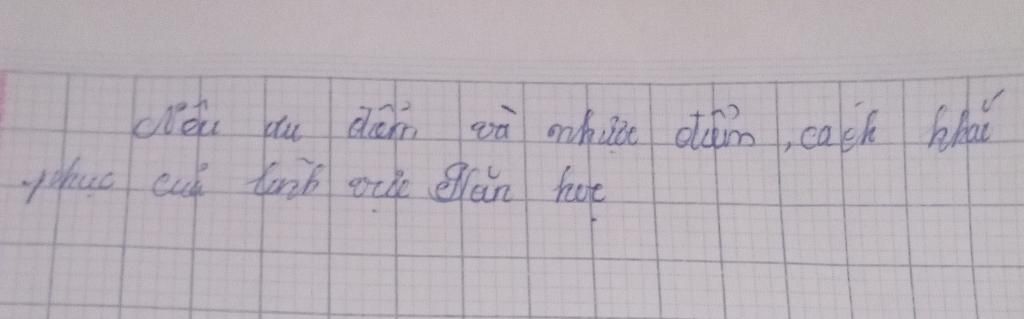 Nêu ưu điểm và nhược điểm, cách khắc
phục của lĩnh vực Văn học